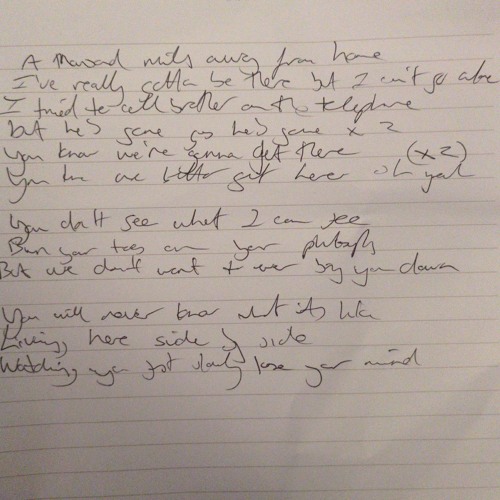 A thousand miles away from home
I've really gotta be there but I can't go alone
I tried to call brother on the telephone
but he's gone yes he's gone x 2
You know we're gonna get there (x2)
You know we gotta get here oh yeah
You don't see what I can see
Burn your on your
But we don't want to ever bring you down
You will never know what it's like
Living here side by side
Watching you just slowly lose your mind